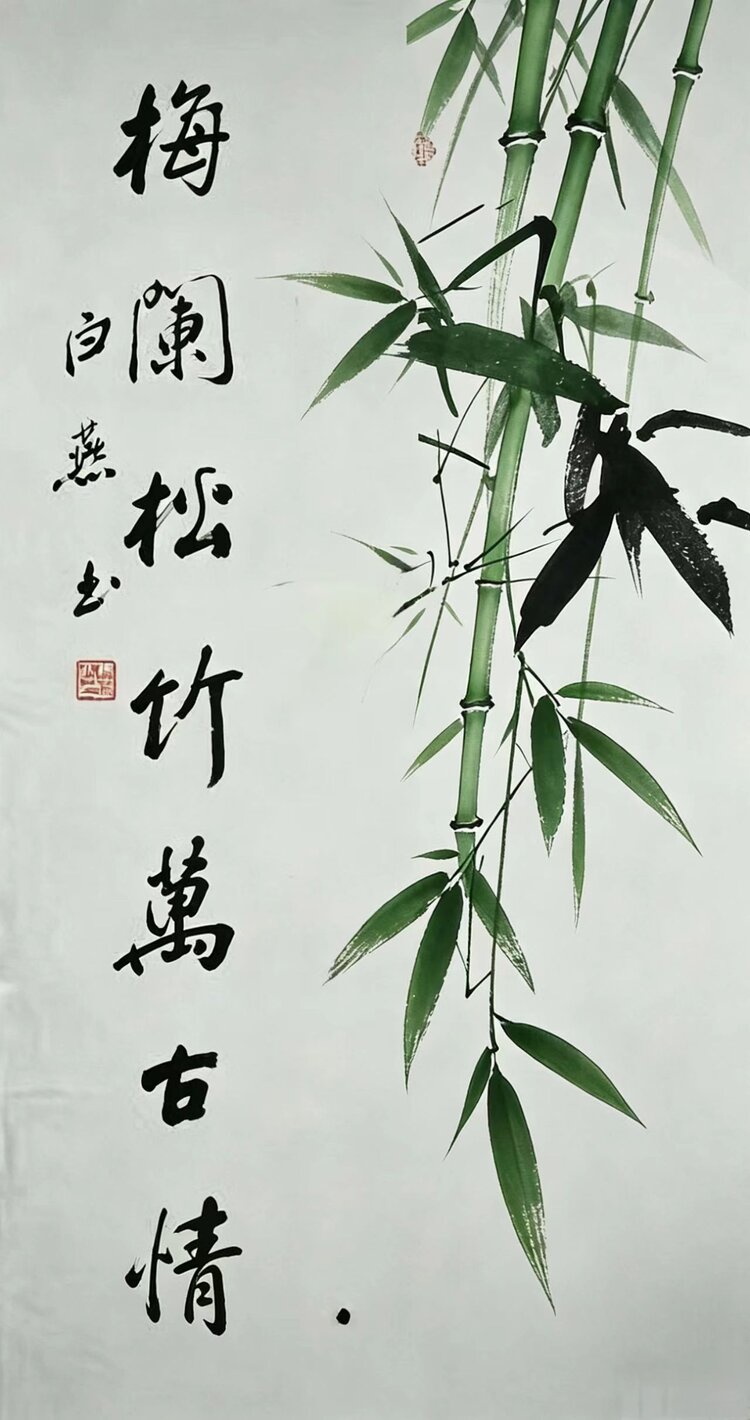 梅闌松竹萬古情
白燕书